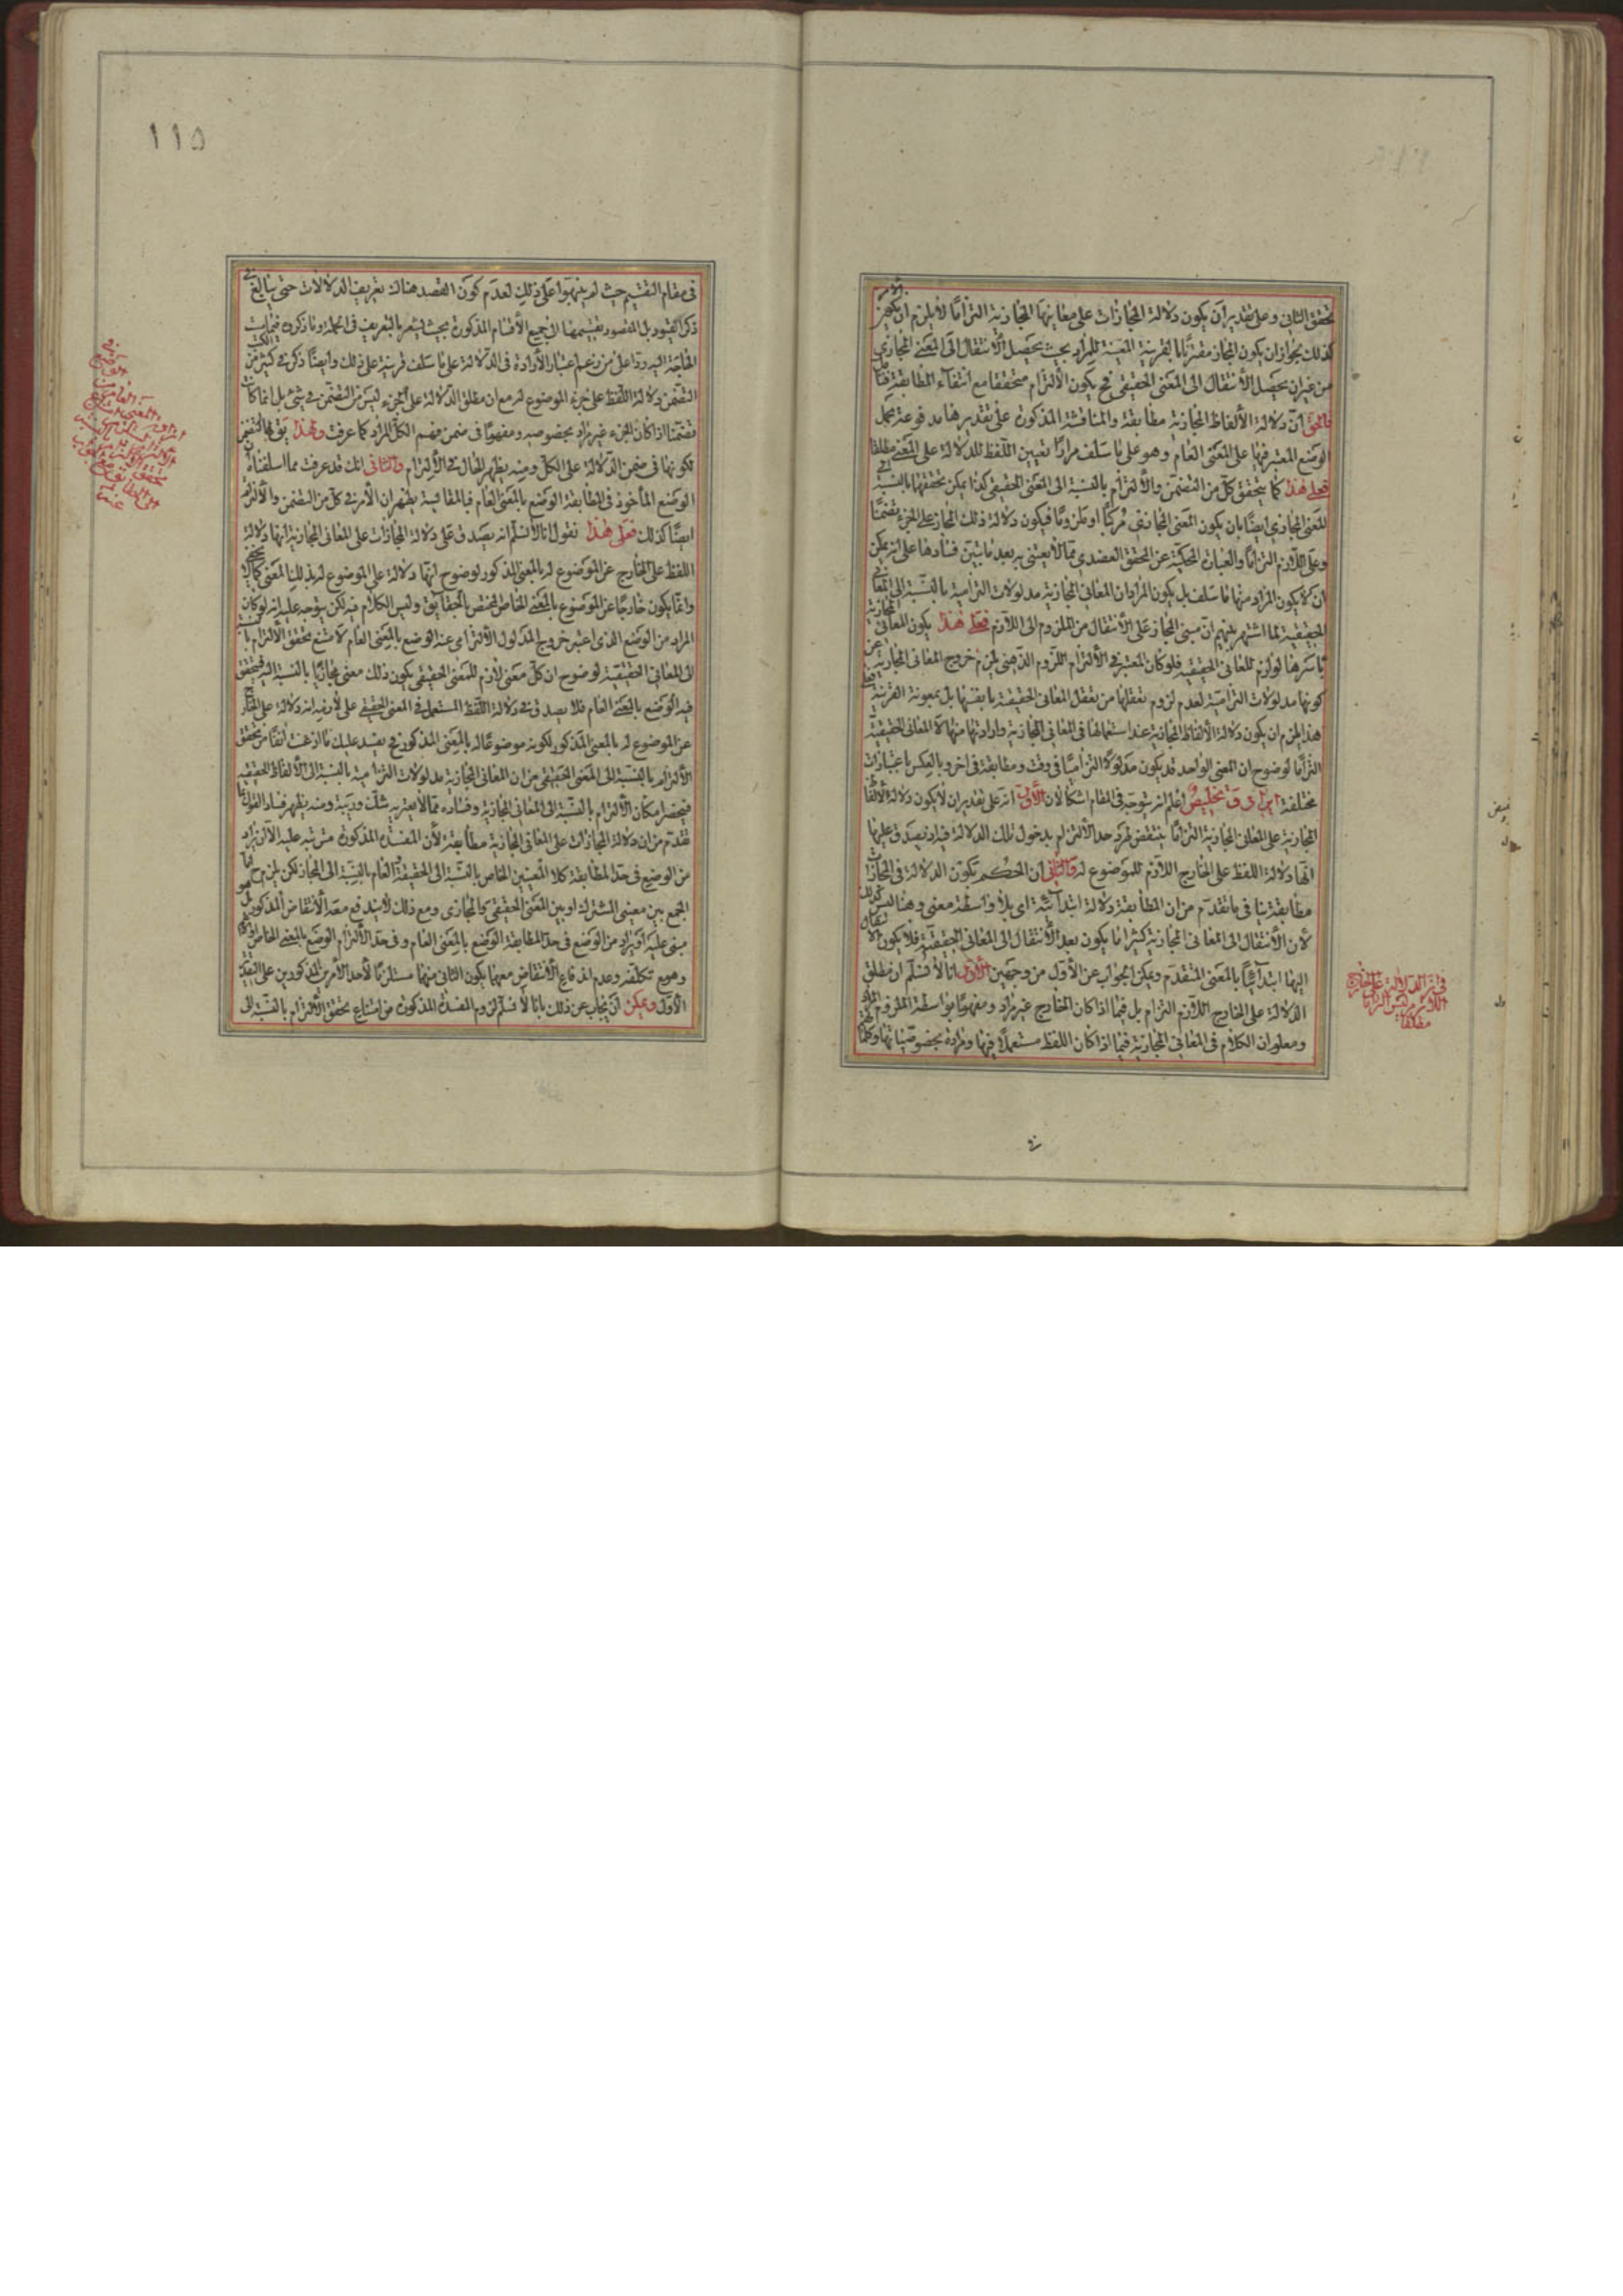 تحقق الثانى وعلى تقدير ان يكون دلالة المجازات على معانيها المجازية التزاما لا يلزم ان يكون الامر
كذلك بجواز ان يكون المجاز مقترنا بالقرينة المعينة للمراد بحيث يحصل الانتقال الى المعنى المجازى
من غير ان يحصل الانتقال الى المعنى الحقيقى فح يكون الالتزام متحققا مع انتفاء المطابقة
فالحق ان دلالة الالفاظ المجازية مطابقة والمناقشة المذكورة على تقديرها مدفوعة بحمل
الوضع المعتبر فيها على المعنى العام وهو على ما سلف مرارا تعيين اللفظ للدلالة على المعنى مطلقا
فعلى هذا كما يتحقق كل من التضمن والالتزام بالنسبة الى المعنى الحقيقى كذا يمكن تحققهما بالنسبة الى
المعنى المجازى ايضا بان يكون المعنى المجازى مركبا او ملزوما فيكون دلالة ذلك المجاز على الجزء تضمنا
وعلى اللازم التزاما والعبارة المحكية عن المحقق العضدى مما لا يعتنى به بعد ما تبين فسادها على انه يمكن
ان لا يكون المراد منها ما سلف بل يكون المراد ان المعانى المجازية مدلولات التزامية بالنسبة الى المعانى
الحقيقية لما اشتهر بينهم ان مبنى المجاز على الانتقال من الملزوم الى اللازم فعلى هذا يكون المعانى المجازية
باسرها لوازم للمعانى الحقيقية فلو كان المعتبر فى الالتزام اللزوم الذهنى لزم خروج المعانى المجازية عن
كونها مدلولات التزامية لعدم لزوم تعقلها من تعقل المعانى الحقيقية بانفسها بل بمعونة القرينة فعلى
هذا يلزم ان يكون دلالة الالفاظ المجازية عند استعمالها فى المعانى المجازية وارادتها منها لا المعانى الحقيقية
التزاما لوضوح ان المعنى الواحد قد يكون مدلولا التزاميا فى وقت ومطابقة فى اخر وبالعكس باعتبارات
مختلفة ايراد وتخليص اعلم انه يتوجه فى المقام اشكالان الاول انه على تقدير ان لا يكون دلالة الالفاظ
المجازية على المعانى المجازية التزاما ينتقض طرد حد الالتزام بدخول تلك الدلالة فيه اذ يصدق عليها
انها دلالة اللفظ على الخارج اللازم للموضوع له والثانى ان الحكم بكون الدلالة فى المجازات
مطابقة ينافى ما تقدم من ان المطابقة دلالة ابتدائية اى بلا واسطة معنى وهنا ليس كذلك
لان الانتقال الى المعانى المجازية كثيرا ما يكون بعد الانتقال الى المعانى الحقيقية فلا يكون الانتقال
اليها ابتدائيا بالمعنى المتقدم ويمكن الجواب عن الاول من وجهين الاول انا لا نسلم ان مطلق
الدلالة على الخارج اللازم التزام بل فيما اذا كان الخارج غير مراد ومفهوما بواسطة الملزوم المراد
ومعلوم ان الكلام فى المعانى المجازية فيما اذا كان اللفظ مستعملا فيها ومرادة بخصوصياتها وكلامهم
فى ان الدلالة على الخارج
اللازم ليس التزاما
مطلقا
١١٥
فى مقام التقسيم حيث لم ينبهوا على ذلك لعدم كون القصد هناك تعريف الدلالات حتى يبالغ فى
ذكر القيود بل المقصود تقسيمها الى جميع الاقسام المذكورة بحيث يشعر بالتعريف فى الجملة وما ذكروه
الحاجة اليه ردا على من زعم اعتبار الارادة فى الدلالة على ما سلف قرينة على ذلك وايضا ذكر فى كثير من الكتب
التضمن دلالة اللفظ على جزء الموضوع له مع ان مطلق الدلالة على الجزء ليس من التضمن فى شئ بل انما كانت
تضمنا اذا كان الجزء غير مراد بخصوصه ومفهوما فى ضمن فهم الكل المراد كما عرفت ولهذا يق لها التضمن
لكونها فى ضمن الدلالة على الكل ومنه يظهر الحال فى الالتزام والثانى انك قد عرفت مما اسلفناه ان
الوضع المأخوذ فى المطابقة الوضع بالمعنى العام فبالمقايسة يظهر ان الامر فى كل من التضمن والالتزام
ايضا كذلك فعلى هذا نقول انا لا نسلم انه يصدق على دلالة المجازات على المعانى المجازية انها دلالة
اللفظ على الخارج عن الموضوع له بالمعنى المذكور لوضوح انها دلالة على الموضوع له بذلك المعنى كما لا يخفى
وانما يكون خارجا عن الموضوع بالمعنى الخاص المختص بالحقايق وليس الكلام فيه لكن يتوجه عليه انه لو كان
المراد من الوضع الذى اعتبر خروج المدلول الالتزامى عنه الوضع بالمعنى العام لامتنع تحقق الالتزام بالنسبة
الى المعانى الحقيقية لوضوح ان كل معنى لازم للمعنى الحقيقى يكون ذلك معنى مجازيا بالنسبة اليه فيتحقق
فيه الوضع بالمعنى العام فلا يصدق فى دلالة اللفظ المستعمل فى المعنى الحقيقى على لازمه انه دلالة على الخارج
عن الموضوع له بالمعنى المذكور لكونه موضوعا له بالمعنى المذكور فح يفسد عليك ما ادعيت انفا من تحقق
الالتزام بالنسبة الى المعنى الحقيقى من ان المعانى المجازية مدلولات التزامية بالنسبة الى الالفاظ الحقيقية
فينحصر امكان الالتزام بالنسبة الى المعانى المجازية وفساده مما لا يعتريه شك وريبة ومنه يظهر فساد القول بما
تقدم من ان دلالة المجازات على المعانى المجازية مطابقة لان المفسدة المذكورة مترتبة عليه الا ان يراد
من الوضع فى حد المطابقة كلا التعيينين الخاص بالنسبة الى الحقيقة والعام بالنسبة الى المجاز لكن يلزم ح اما
الجمع بين معنيى المشترك او بين المعنى الحقيقى والمجازى ومع ذلك لا يندفع معه الانتقاض المذكور بل هو
مبنى عليه او يراد من الوضع فى حد المطابقة الوضع بالمعنى العام وفى حد الالتزام الوضع بالمعنى الخاص
وهو مع تكلفه وعدم اندفاع الانتقاض معهما يكون الثانى منهما مستلزما لاحد الامرين المذكورين على التقدير
الاول ويمكن ان يجاب عن ذلك بانا لا نسلم لزوم المفسدة المذكورة من امتناع تحقق الالتزام بالنسبة الى